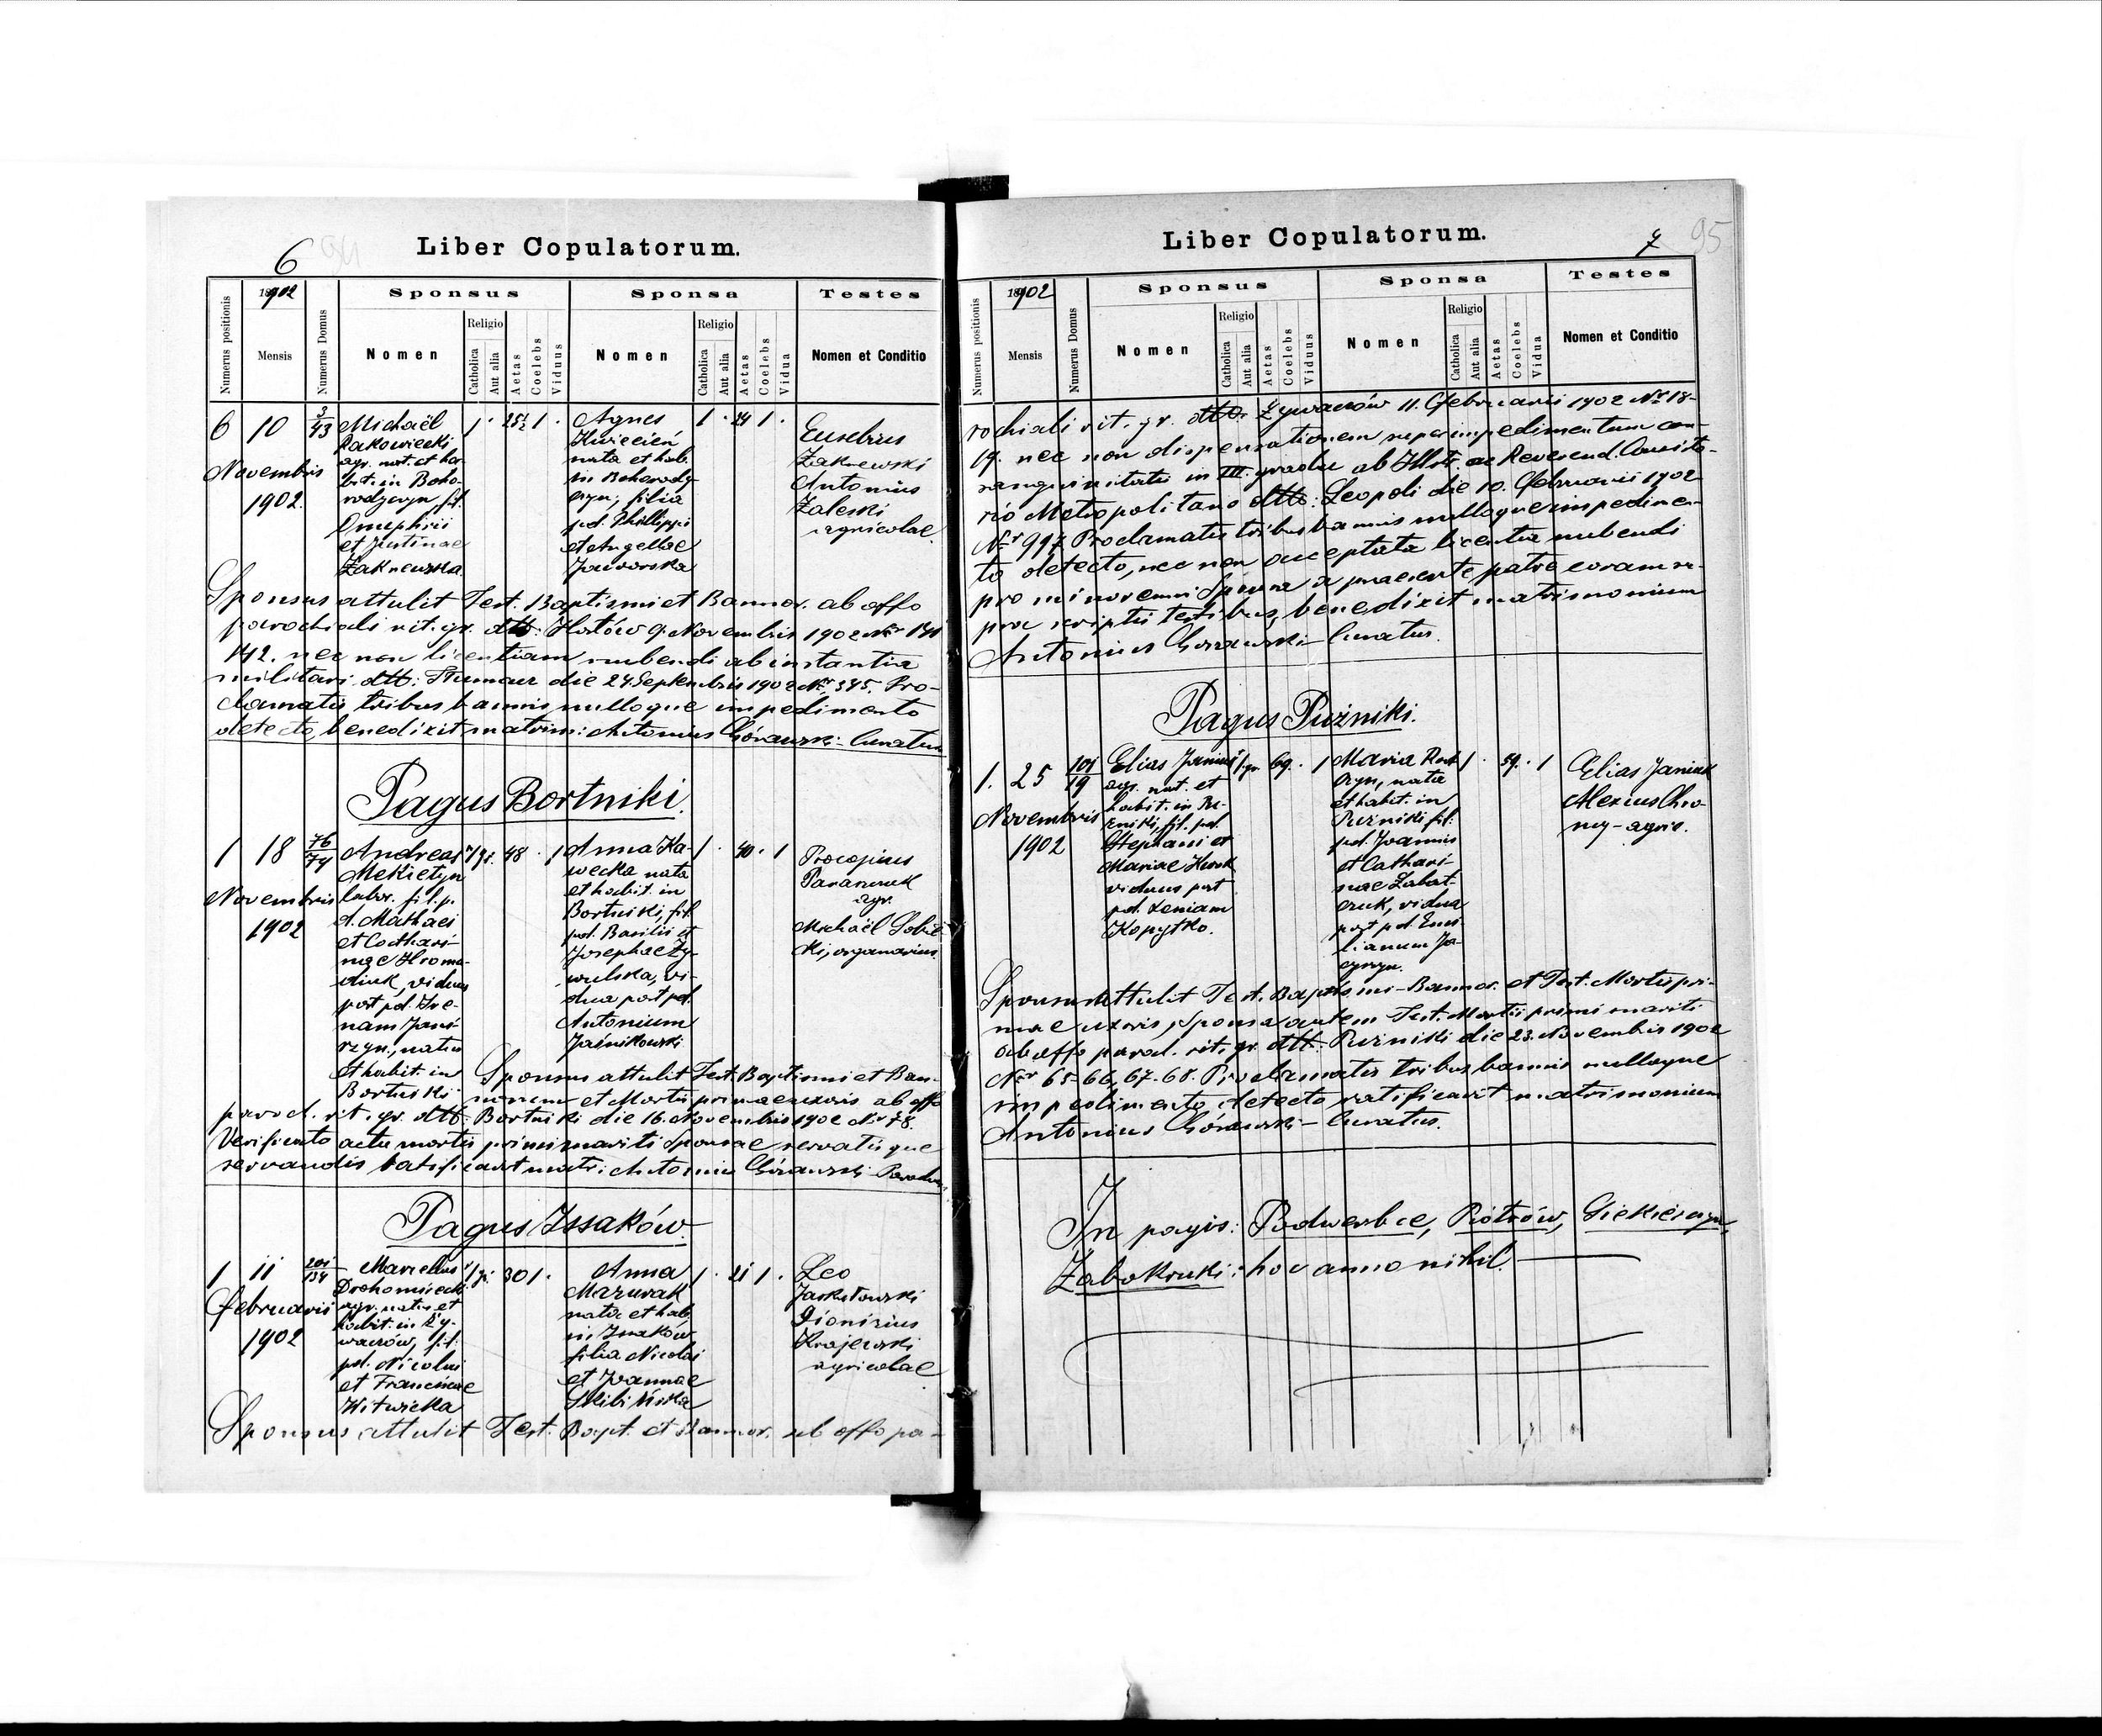 6
Liber Copulatorum.
Numerus positionis
1902
Mensis
Numerus Domus
Sponsus
Nomen
Religio
Catholica
Aut alia
Aetas
Coelebs
Viduus
Sponsa
Nomen
Religio
Catholica
Aut alia
Aetas
Coelebs
Vidua
Testes
Nomen et Conditio
6 10 3/43
Novembris
1902.
Michaël
Rakowiecki
agr. nat. et ha-
bit. in Boho-
rodyczyn, fil.
Onuphrii
et Justinae
Żakrewska
1 · 25½ 1 ·
Agnes
Kwiecień
nata et hab.
in Bohorody-
czyn, filia
pd. Philippi
et Angellae
Jaworska
1 · 24 1 ·
Eusebius
Zakrewski
Antonius
Zaleski
agricolae.
Sponsus attulit Test. Baptismi et Bannor. ab offo
parochiali rit. gr. dtto: Hostów 9. Novembris 1902 Nr 141
142. nec non licentiam nubendi ab instantia
militari dtto: die 24 Septembris 1902 Nr. 345. Pro-
clamatis tribus bannis nulloque impedimento
detecto, benedixit matrim: Antonius Górawski - Curatus
Pagus Bortniki.
1 18 76/74
Novembris
1902
Andreas
Mekietyn
labor. fil. p.
d. Mathaei
et Cathari-
nae Hroma-
diuk, viduus
post pd. Ire-
nam Jani-
rzyn, natus
et habit. in
Bortniki
1 gr. 48 · 1
Anna Ka-
wecka nata
et habit. in
Bortniki, fil.
pd. Basilii et
Josephae Zy-
wulska, vi-
dua post pd.
Antonium
Jaśnikowski
1 · 40 · 1
Procopius
agr.
Michaël Sobie-
ki, organarius.
Sponsus attulit Test. Baptismi et Ban-
norum et Mortis primae uxoris ab offo
paroch. rit. gr. dtto: Bortniki die 16. Novembris 1902 Nr 78.
Verificato actu mortis primi mariti Sponsae servatisque
servandis ratificavit matr: Antonius Górawski Parochus
Pagus Issaków.
1 11 201/134
Februarii
1902
Marcellus
Drohomirecki
agr. natus et
habit. in Ży-
waczów, fil.
pd. Nicolai
et Franciscae
Witwicka
1 gr. 30 1 ·
Anna
Mazurak
nata et hab.
in Issaków
filia Nicolai
et Joannae
Skibińska
1 · 21 1 ·
Leo
Jaskułowski
Dionisius
Krajewski
agricolae
Sponsus attulit Test. Bapt. et Bannor. ab offo pa-
7
95
Liber Copulatorum.
Numerus positionis
1902
Mensis
Numerus Domus
Sponsus
Nomen
Religio
Catholica
Aut alia
Aetas
Coelebs
Viduus
Sponsa
Nomen
Religio
Catholica
Aut alia
Aetas
Coelebs
Vidua
Testes
Nomen et Conditio
rochiali rit. gr. dtto. Żywaczów 11. Februarii 1902 Nr 18-
19. nec non dispensationem super impedimentum con-
sanguinitatis in III. gradu ab Illstr. ac Reverend. Consisto-
rio Metropolitano dtto: Leopoli die 10. Februarii 1902
Nr 997 Proclamatis tribus bannis nulloque impedimen-
to detecto, nec non acceptata licentia nubendi
pro minorenni Sponsa a praesente patre coram su-
pra scriptis testibus, benedixit matrimonium
Antonius Górawski - Curatus.
Pagus Pużniki.
1. 25 101/19
Novembris
1902
Elias Janiuk
agr. nat. et
habit. in Pu-
żniki, fil. pd.
Stephani et
Mariae Huyk
viduus post
pd. Xeniam
Kopytko.
1 gr. 69. · 1
Maria
nata
et habit. in
Pużniki fil.
pd. Joannis
et Cathari-
nae Zabat-
czuk, vidua
post pd. Emi-
lianum Ja-
cyszyn.
1 · 59. · 1
Elias Janiuk
Alexius Chro-
my - agric.
Sponsus attulit Test. Baptismi - Bannor. et Test. Mortis pri-
mae uxoris, Sponsa autem Test. Mortis primi mariti
ab offo paroch. rit. gr. dtto: Pużniki die 23. Novembris 1902
Nr 65-66, 67. 68. Proclamatis tribus bannis nulloque
impedimento detecto ratificavit matrimonium
Antonius Górawski - Curatus.
In pagis: Podwerbce, Piotrów, Siekierczyn,
Żabokruki: hoc anno nihil.